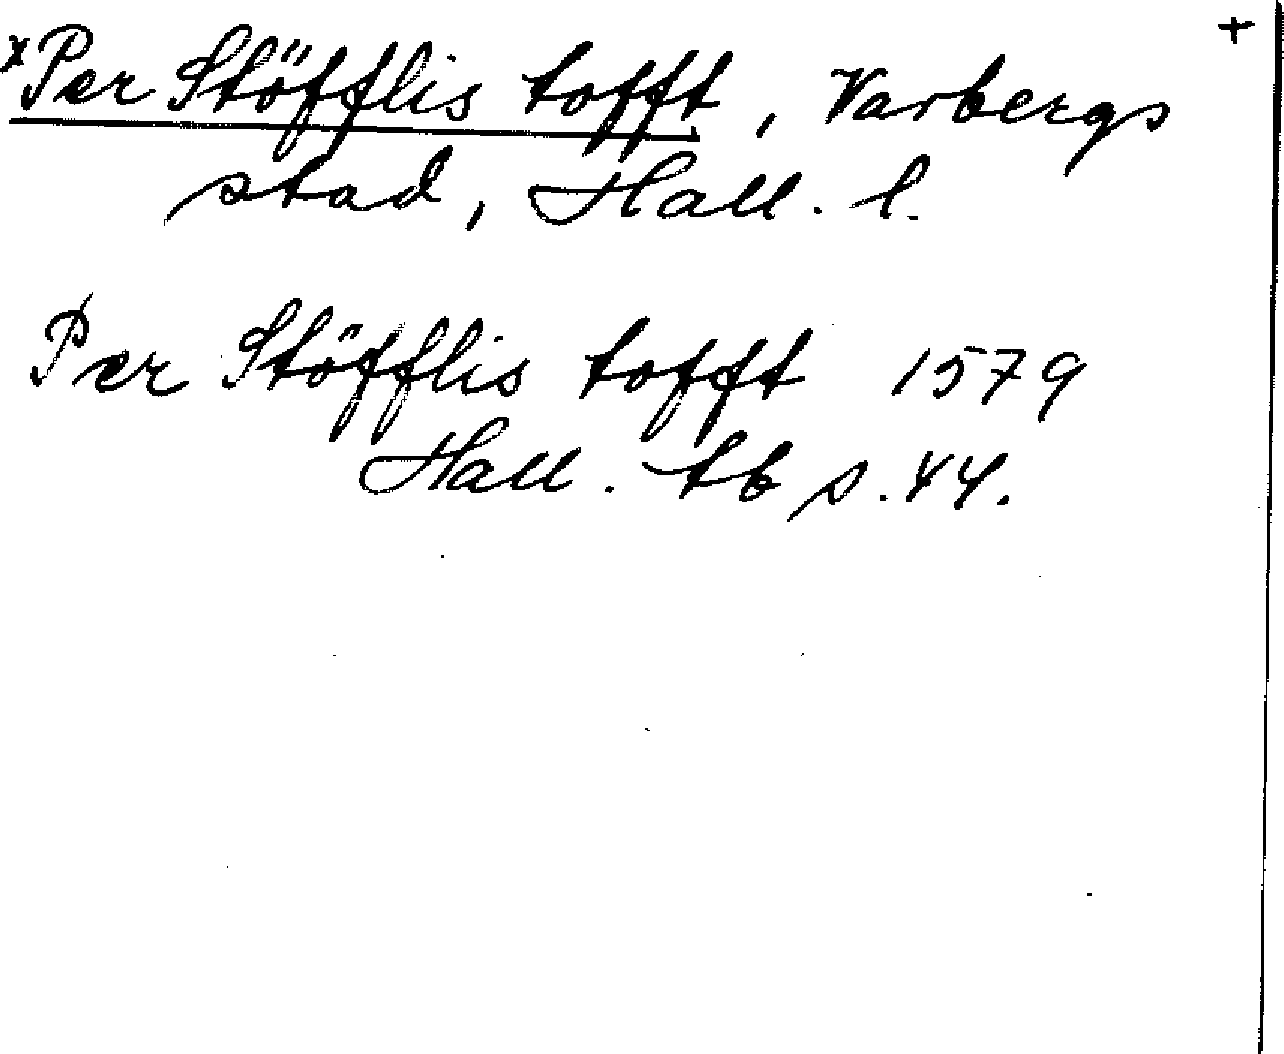 +
*Per Stöfflis tofft, Varbergs
stad, Hall. l.
Per Stöfflis tofft 1579
Hall. tb s. 44.